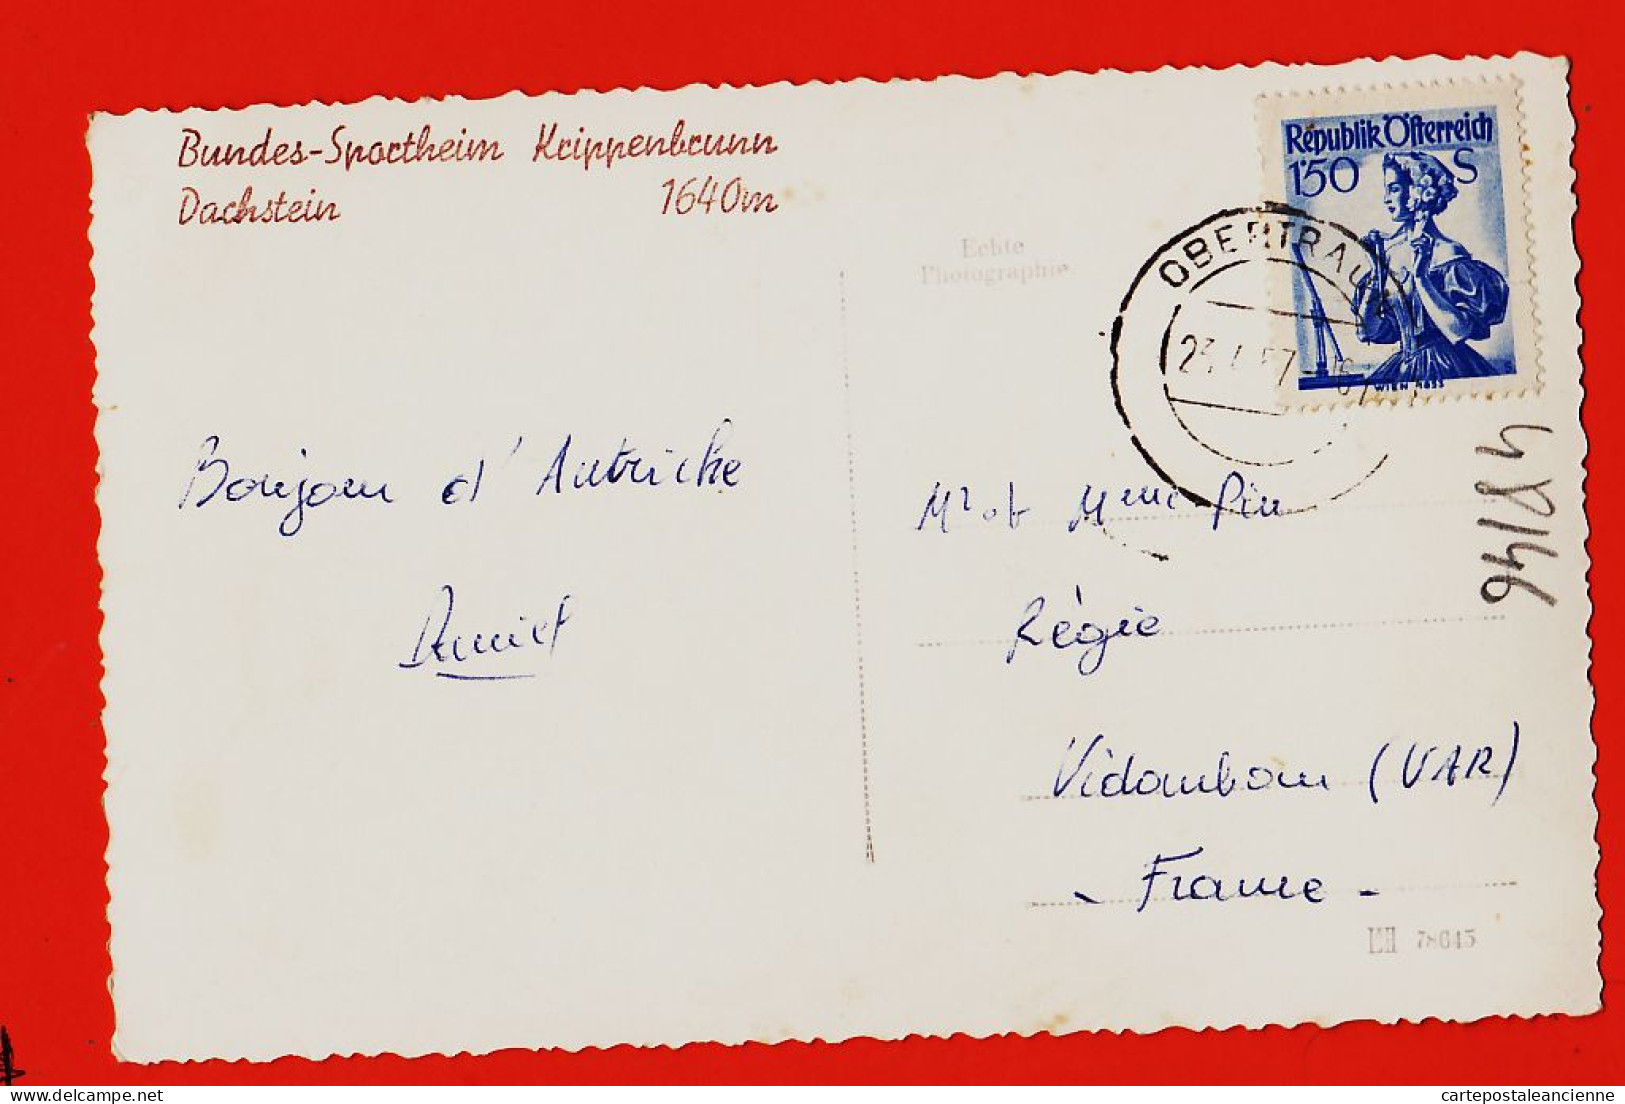 Bundes-Sportheim Krippenbrunn
Dachstein 1640m
Echte
Photographie
Republik Österreich
1'50 S
WIEN 1855
OBERTRAUN
Bonjour d'Autriche
Daniel
Mr et Mme Pin
Régie
Vidauban (VAR)
- France -
78645
48146
cartepostaleancienne